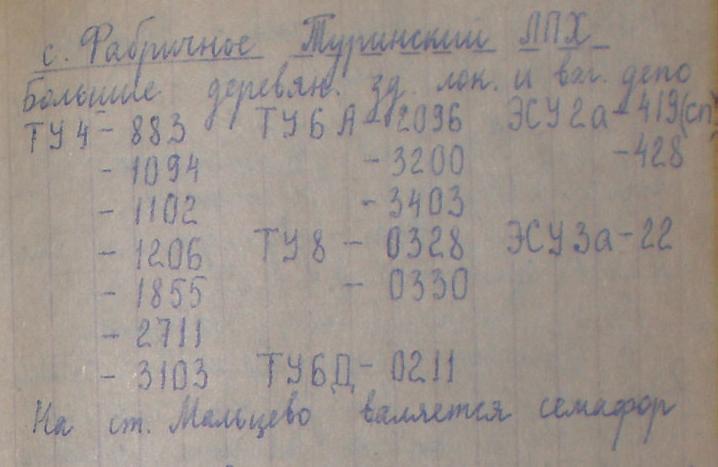 с. Фабричное Туринский ЛПХ
Большие деревян. зд. лок. и ваг. депо
ТУ4 - 883 ТУ6А - 2096 ЭСУ2а - 419(сп)
- 1094 - 3200 - 428
- 1102 - 3403
- 1206 ТУ8 - 0328 ЭСУ3а - 22
- 1855 - 0330
- 2711
- 3103 ТУ6Д - 0211
На ст. Мальцево валяется семафор